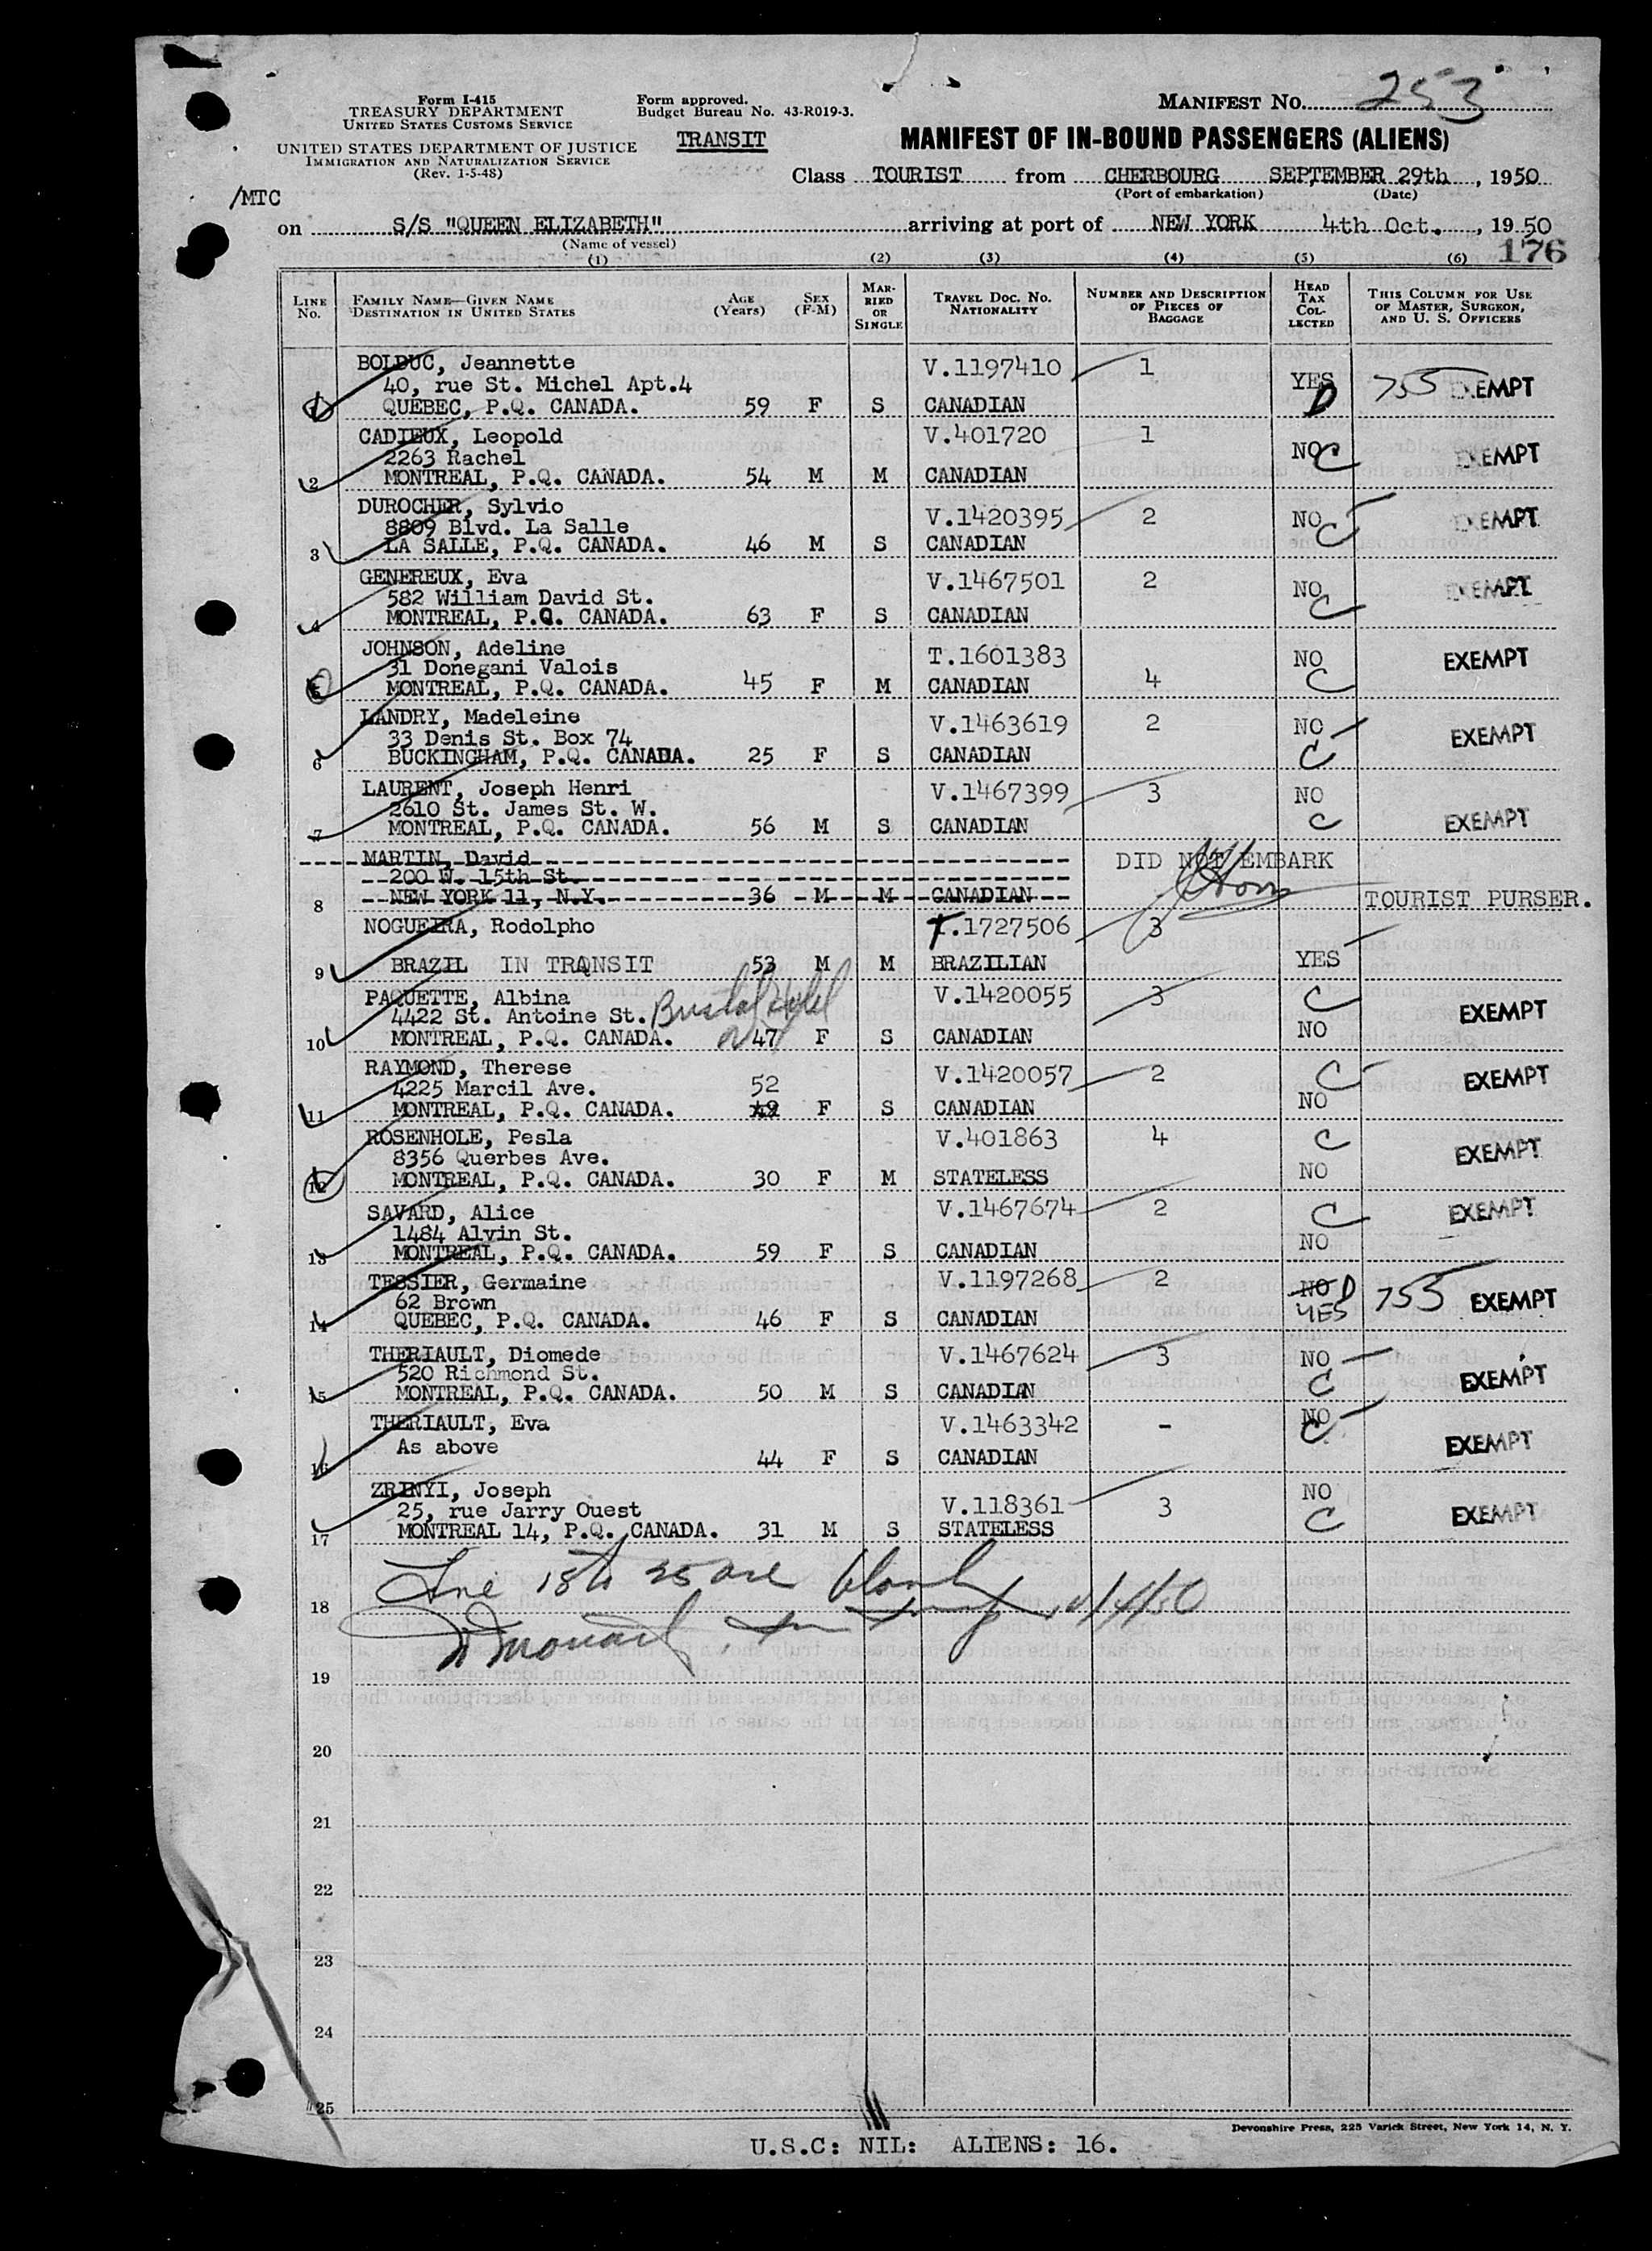 Form I-415
TREASURY DEPARTMENT
UNITED STATES CUSTOMS SERVICE
UNITED STATES DEPARTMENT OF JUSTICE
IMMIGRATION AND NATURALIZATION SERVICE
(Rev. 1-5-48)
Form approved.
Budget Bureau No. 43-R019-3.
TRANSIT
MANIFEST NO. 253
MANIFEST OF IN-BOUND PASSENGERS (ALIENS)
Class TOURIST from CHERBOURG SEPTEMBER 29th, 1950
(Port of embarkation) (Date)
/MTC
on S/S "QUEEN ELIZABETH" arriving at port of NEW YORK 4th Oct., 1950
(Name of vessel)
176
(1) (2) (3) (4) (5) (6)
LINE No. FAMILY NAME—GIVEN NAME DESTINATION IN UNITED STATES AGE (YEARS) SEX (F-M) MARRIED OR SINGLE TRAVEL DOC. NO. NATIONALITY NUMBER AND DESCRIPTION OF PIECES OF BAGGAGE HEAD TAX COLLECTED THIS COLUMN FOR USE OF MASTER, SURGEON, AND U. S. OFFICERS
BOLDUC, Jeannette V.1197410 1
40, rue St. Michel Apt.4 YES 755 EXEMPT
1 QUEBEC, P.Q. CANADA. 59 F S CANADIAN D
CADIEUX, Leopold V.401720 1
2263 Rachel NO C EXEMPT
2 MONTREAL, P.Q. CANADA. 54 M M CANADIAN
DUROCHER, Sylvio V.1420395 2 NO EXEMPT
8809 Blvd. La Salle C
3 LA SALLE, P.Q. CANADA. 46 M S CANADIAN
GENEREUX, Eva V.1467501 2 NO EXEMPT
582 William David St. C
4 MONTREAL, P.Q. CANADA. 63 F S CANADIAN
JOHNSON, Adeline T.1601383 NO EXEMPT
31 Donegani Valois C
5 MONTREAL, P.Q. CANADA. 45 F M CANADIAN 4
LANDRY, Madeleine V.1463619 2 NO EXEMPT
33 Denis St. Box 74
6 BUCKINGHAM, P.Q. CANADA. 25 F S CANADIAN C
LAURENT, Joseph Henri V.1467399 3 NO
2610 St. James St. W. EXEMPT
7 MONTREAL, P.Q. CANADA. 56 M S CANADIAN C
MARTIN, David DID NOT EMBARK
200 W. 15th St.
8 NEW YORK 11, N.Y. 36 M M CANADIAN TOURIST PURSER.
NOGUEIRA, Rodolpho T.1727506 3
9 BRAZIL IN TRANSIT 53 M M BRAZILIAN YES
PAQUETTE, Albina V.1420055 3 C EXEMPT
4422 St. Antoine St.
10 MONTREAL, P.Q. CANADA. 47 F S CANADIAN NO
RAYMOND, Therese V.1420057 2 C EXEMPT
4225 Marcil Ave. 52
11 MONTREAL, P.Q. CANADA. F S CANADIAN NO
ROSENHOLE, Pesla V.401863 4 C EXEMPT
8356 Querbes Ave.
12 MONTREAL, P.Q. CANADA. 30 F M STATELESS NO
SAVARD, Alice V.1467674 2 C EXEMPT
1484 Alvin St.
13 MONTREAL, P.Q. CANADA. 59 F S CANADIAN NO
TESSIER, Germaine V.1197268 2 NO D
62 Brown YES 755 EXEMPT
14 QUEBEC, P.Q. CANADA. 46 F S CANADIAN
THERIAULT, Diomede V.1467624 3 NO
520 Richmond St. EXEMPT
15 MONTREAL, P.Q. CANADA. 50 M S CANADIAN C
THERIAULT, Eva V.1463342 - NO C
As above EXEMPT
16 44 F S CANADIAN
ZRINYI, Joseph NO
25, rue Jarry Ouest V.118361 3 EXEMPT
17 MONTREAL 14, P.Q. CANADA. 31 M S STATELESS C
Line 18 to 25 are blank
18
19
20
21
22
23
24
25
Devonshire Press, 225 Varick Street, New York 14, N. Y.
U.S.C: NIL: ALIENS: 16.